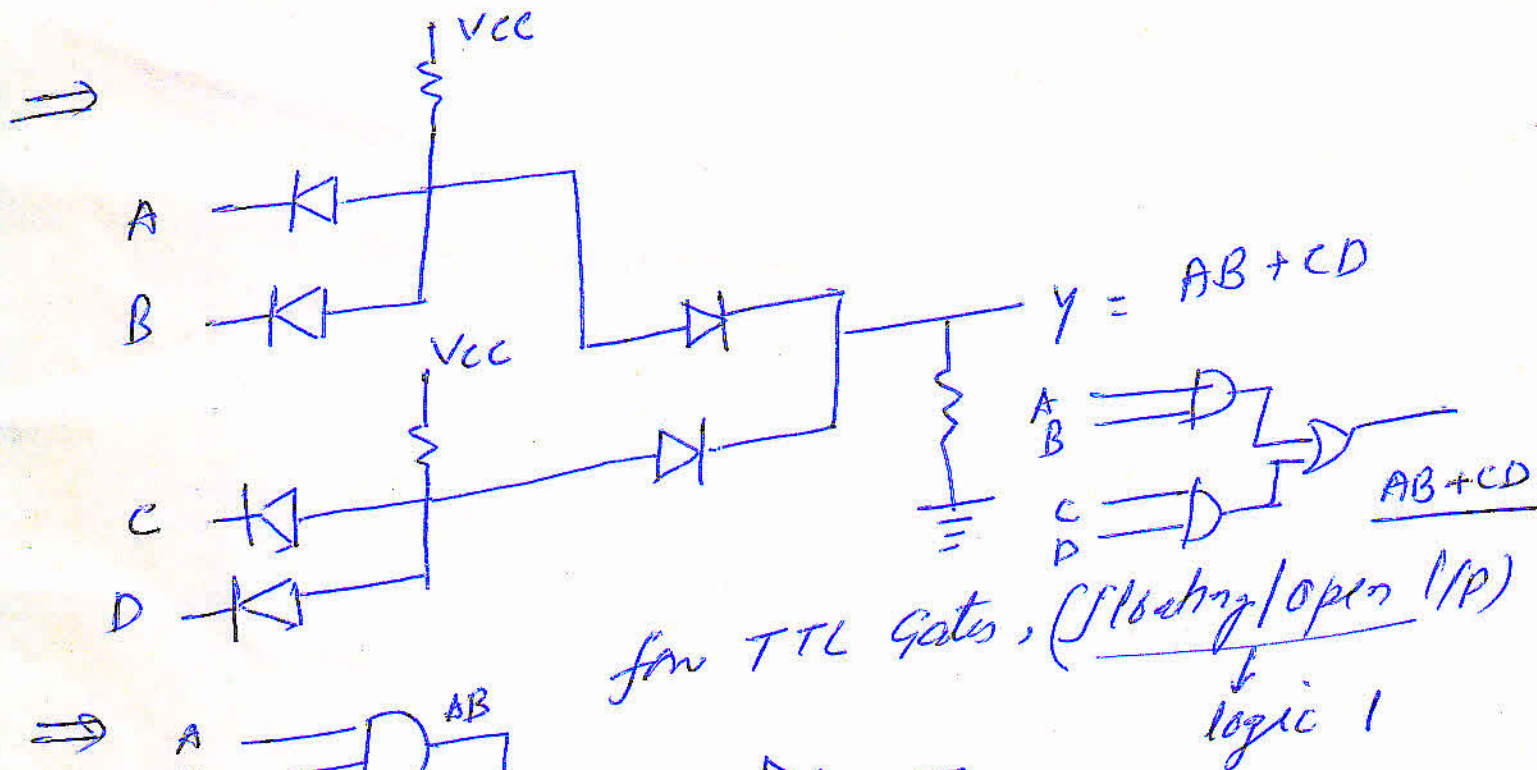 ⇒
VCC
A
B
Y = AB + CD
VCC
A
B
C
D
AB+CD
C
D
for TTL Gates, (floating/open I/P)
↓
logic 1
⇒ A
AB